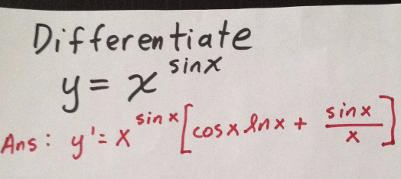 Differentiate
y = x^sinx
Ans: y' = x^sin x [cosx lnx + sinx/x]